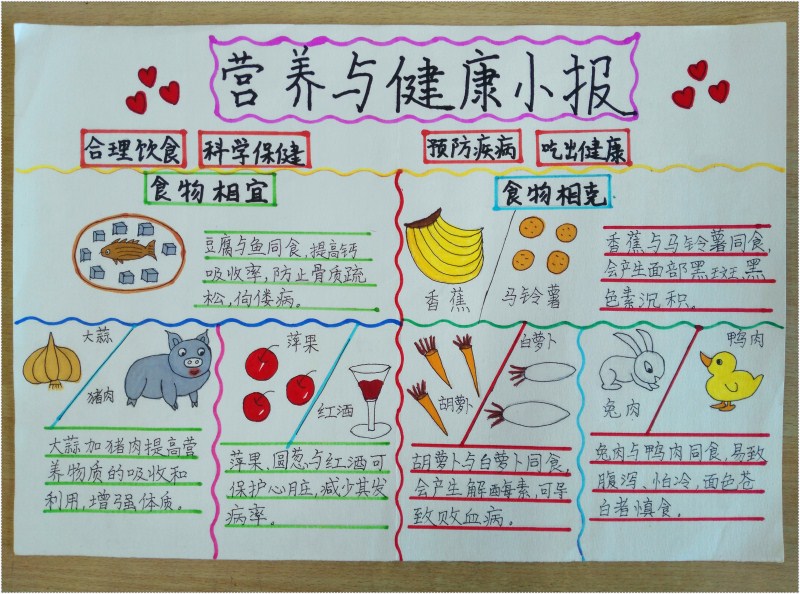 营养与健康小报
合理饮食
科学保健
预防疾病
吃出健康
食物相宜
豆腐与鱼同食,提高钙
吸收率,防止骨质疏
松,佝偻病。
食物相克
香蕉
马铃薯
香蕉与马铃薯同食,
会产生面部黑斑,黑
色素沉积。
大蒜
猪肉
大蒜加猪肉提高营
养物质的吸收和
利用,增强体质。
苹果
红酒
苹果,圆葱与红酒可
保护心脏,减少其发
病率。
胡萝卜
白萝卜
胡萝卜与白萝卜同食,
会产生解酶毒素,可导
致败血病。
兔肉
鸭肉
兔肉与鸭肉同食,易致
腹泻、怕冷,面色苍
白者慎食。